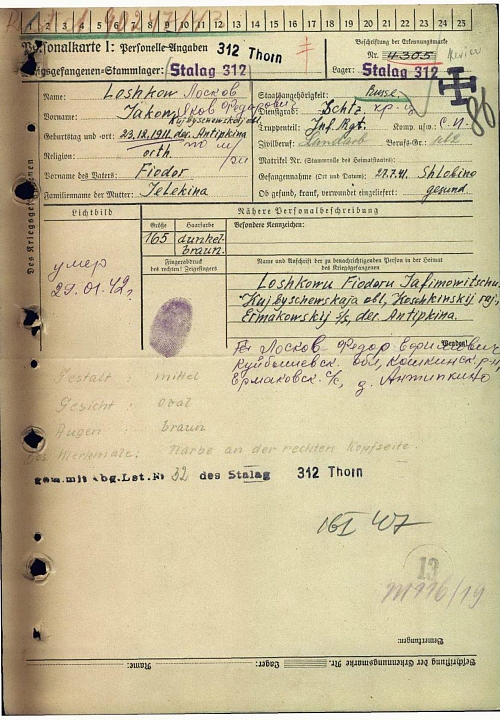 1 2 3 4 5 6 7 8 9 10 11 12 13 14 15 16 17 18 19 20 21 22 23 24 25
Personalkarte I: Personelle Angaben 312 Thorn
Beschriftung der Erkennungsmarke
Kriegsgefangenen-Stammlager: Stalag 312
Nr. 4305
Lager: Stalag 312
86
Name: Loshkow Лосков
Staatsangehörigkeit: Russe
Vorname: Jakow Яков Федорович
Dienstgrad: Schtz
Kujbyschewskaj obl.
Truppenteil: Inf. Rgt. Komp. usw.:
Geburtstag und -ort: 23.12.1911 der. Antipkina
Zivilberuf: Landarb Berufs-Gr.
Religion: orth.
Matrikel Nr. (Stammrolle des Heimatstaates):
Vorname des Vaters: Fiodor
Gefangennahme (Ort und Datum): 27.7.41. Shlobino
Familienname der Mutter: Telekina
Ob gesund, krank, verwundet eingeliefert: gesund
Des Kriegsgefangenen
Lichtbild
Nähere Personalbeschreibung
Größe Haarfarbe
Besondere Kennzeichen:
165 dunkel-
braun.
Fingerabdruck
des rechten! Zeigefingers
Name und Anschrift der zu benachrichtigenden Person in der Heimat
des Kriegsgefangenen
умер
29.01.42г.
Loshkowu Fiodoru Jafimowitschu.
Kujbyschewskaja obl, Koschkinskij raj.
Ermakowskij s/s, der Antipkina.
Wenden!
Лосков Федор Ефимович
Куйбышевск. обл, Кошкинск. р-н,
Ермаковск. с/с, д. Антипкино
Gestalt: mittel
Gesicht: oval
Augen: braun
Bes. Merkmale: Narbe an der rechten Kopfseite.
gem. mit Abg. Lst. Nr 32 des Stalag 312 Thorn
13
Bemerkungen:
Beschriftung der Erkennungsmarke Nr. Lager: Name: